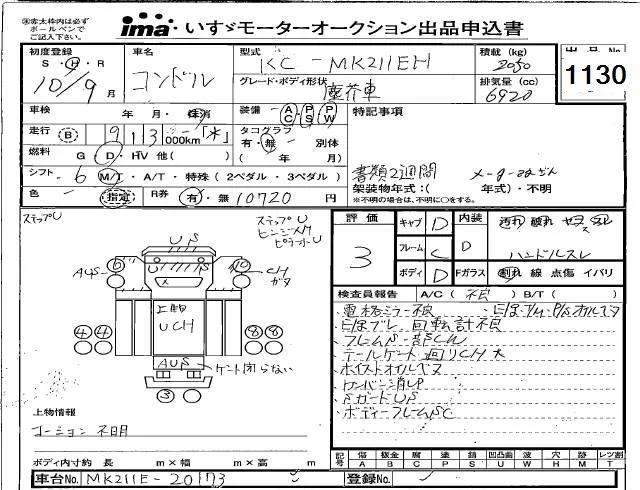 ※赤太枠内は必ず
ボールペンで
ご記入下さい。
ima いすゞモーターオークション出品申込書
初度登録 S・H・R 10/9月
車名 コンドル
型式 KC-MK211EH
積載(kg) 2050
出品No 1130
グレード・ボディ形状 塵芥車
排気量(cc) 6920
車検 年 月・抹消
装備 AC PS PW
特記事項
走行 B 913 000km「*」
タコグラフ 有・無 別体
( 年 月)
燃料 G・D・HV 他( )
書類2週間
シフト 6 M/T・A/T・特殊(2ペダル・3ペダル)
架装物年式:( 年式)・不明
※不明の場合は、不明に○をする。
色 (指定) R券 有・無 10720円
ステップU
ステップU
ヒンジメクレ
ピラーU
評価 3
キャブ D
フレーム C
ボディ D
内装 D
汚れ 破れ ヤケ スレ
ハンドルスレ
Fガラス 割れ 線 点傷 イバリ
US
AUS
CH
ガタ
上物
UCH
AUS
ゲート閉らない
④④
⑧⑧
③
検査員報告 A/C( 不良 ) B/T( )
電格ミラー不良
E/g・T/M・P/Sオイルモレ
回転計不良
フレームS一部CH
テールゲート廻りCH大
ホイストオイルモレ
ワンバン消UP
SガードUS
ボディーフレームSC
上物情報
コーション 不明
ボディ内寸約 長 m×幅 m×高 m
記号 傷A 板金B 腐C 塗P 錆S 凹凸曲U 波W 穴H 跡M レンズ割T
車台No. MK211E-20173
登録No.